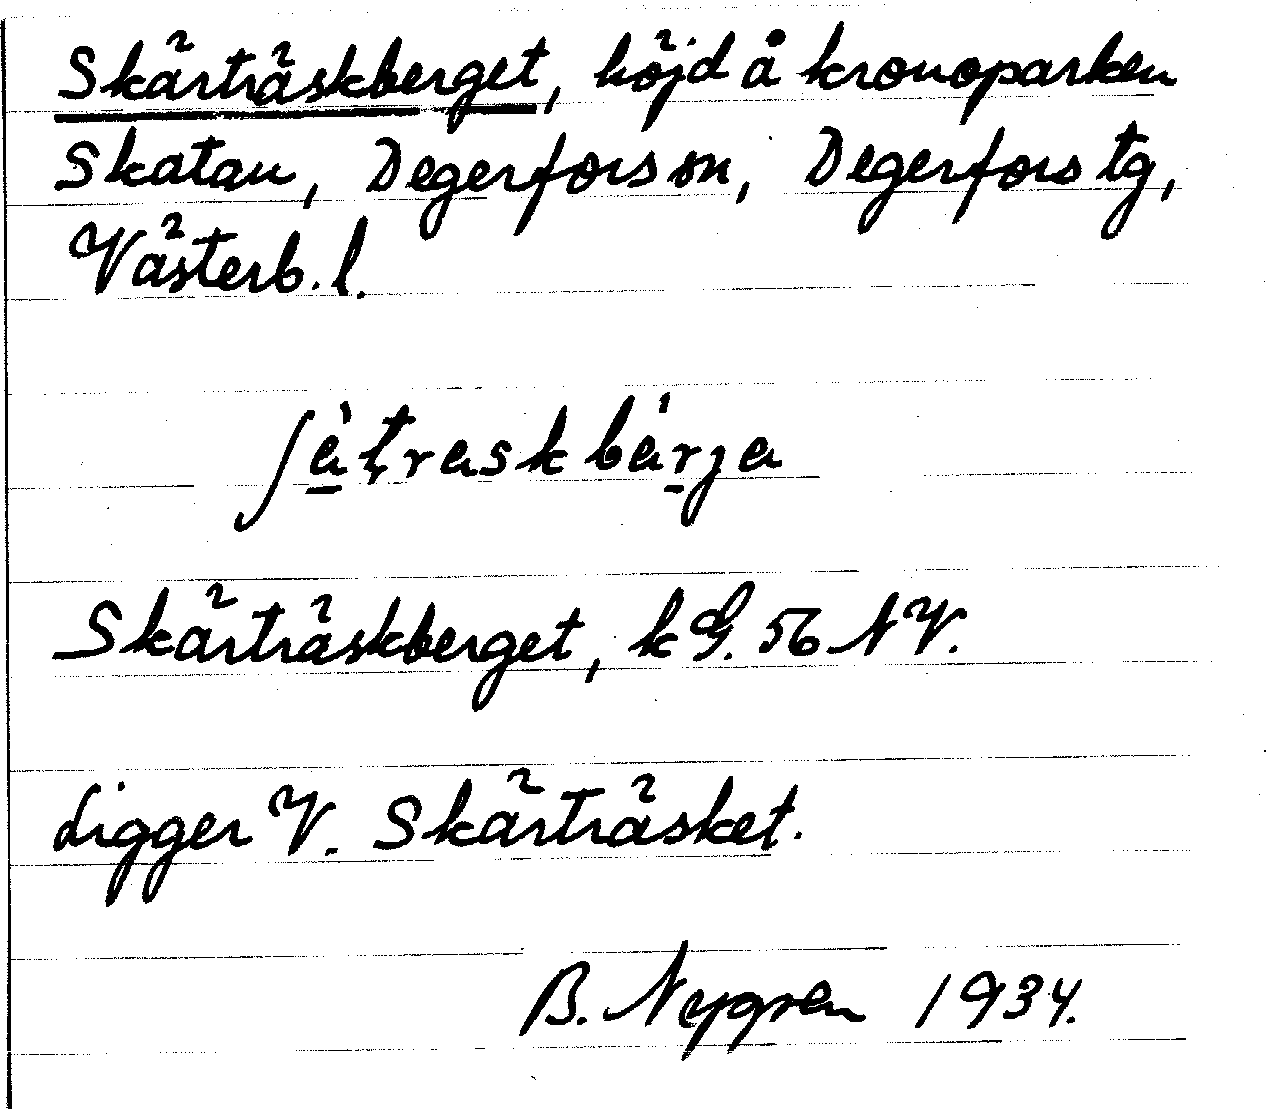 Skärträskberget, höjd å kronoparken
Skatan, Degerfors sn, Degerfors tg,
Västerb. l.
ʃètraskbárja
Skärträskberget, k G. 56 NV.
Ligger V. Skärträsket.
B. Nygren 1934.